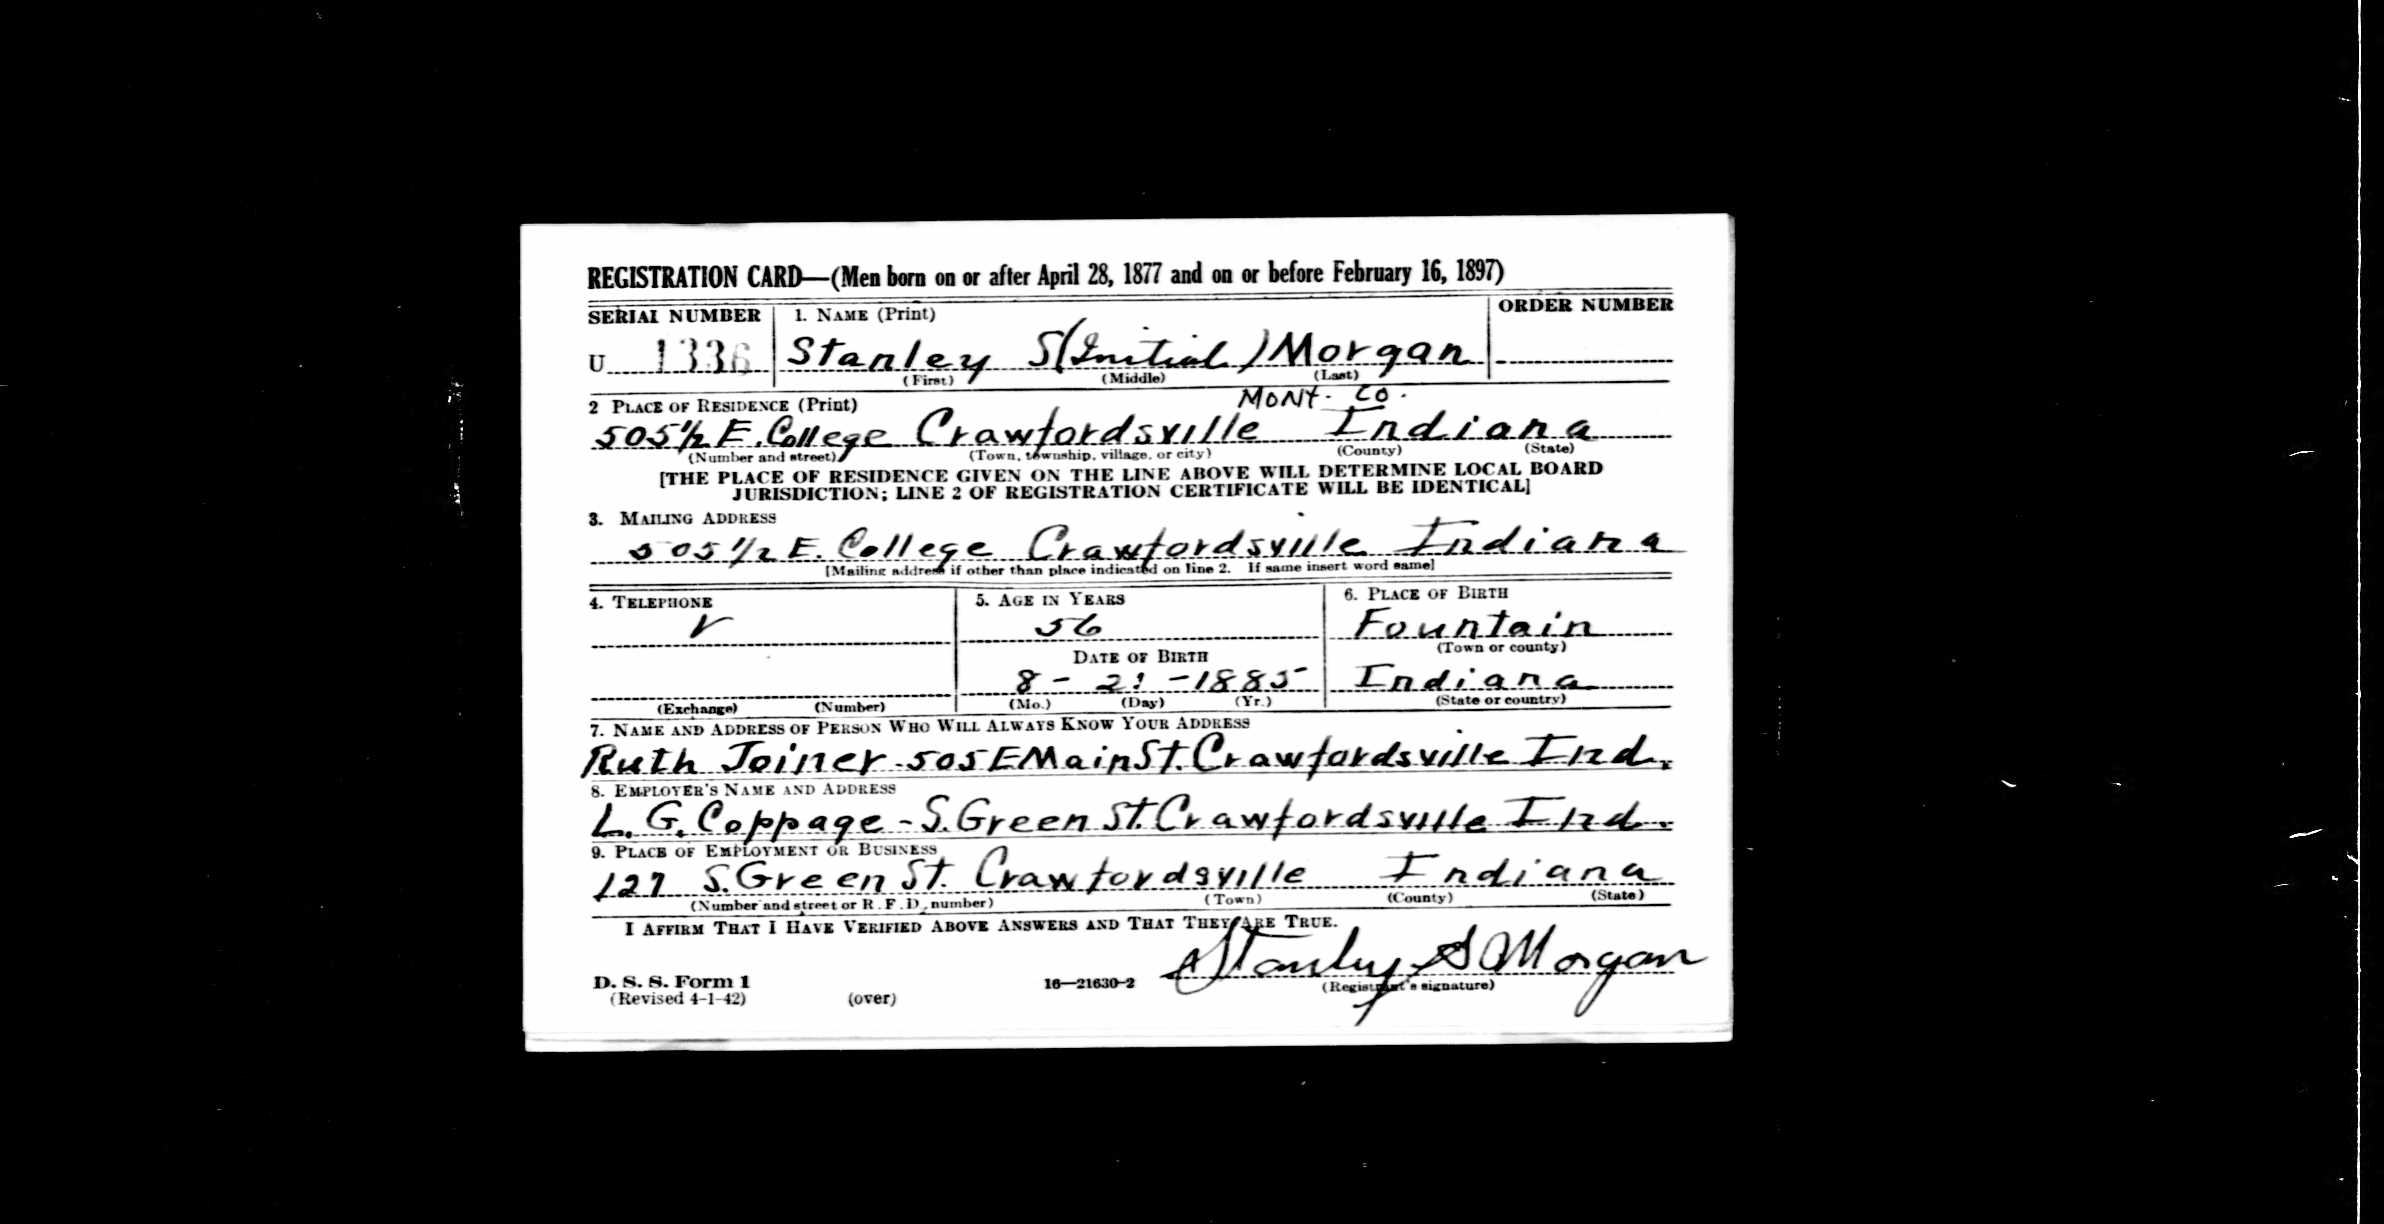 REGISTRATION CARD—(Men born on or after April 28, 1877 and on or before February 16, 1897)
SERIAL NUMBER 1. NAME (Print) ORDER NUMBER
U 1336 Stanley S(Initial) Morgan
(First) (Middle) (Last)
2 PLACE OF RESIDENCE (Print) MONT. CO.
505 1/2 E. College Crawfordsville Indiana
(Number and street) (Town, township, village, or city) (County) (State)
[THE PLACE OF RESIDENCE GIVEN ON THE LINE ABOVE WILL DETERMINE LOCAL BOARD
JURISDICTION; LINE 2 OF REGISTRATION CERTIFICATE WILL BE IDENTICAL]
3. MAILING ADDRESS
505 1/2 E. College Crawfordsville Indiana
[Mailing address if other than place indicated on line 2. If same insert word same]
4. TELEPHONE 5. AGE IN YEARS 6. PLACE OF BIRTH
56 Fountain
(Town or county)
DATE OF BIRTH
8 - 21 - 1885 Indiana
(Exchange) (Number) (Mo.) (Day) (Yr.) (State or country)
7. NAME AND ADDRESS OF PERSON WHO WILL ALWAYS KNOW YOUR ADDRESS
Ruth Joiner - 505 E Main St. Crawfordsville Ind.
8. EMPLOYER'S NAME AND ADDRESS
L. G. Coppage - S. Green St. Crawfordsville Ind.
9. PLACE OF EMPLOYMENT OR BUSINESS
127 S. Green St. Crawfordsville Indiana
(Number and street or R. F. D. number) (Town) (County) (State)
I AFFIRM THAT I HAVE VERIFIED ABOVE ANSWERS AND THAT THEY ARE TRUE.
Stanley S Morgan
D. S. S. Form 1 16—21630-2 (Registrant's signature)
(Revised 4-1-42) (over)